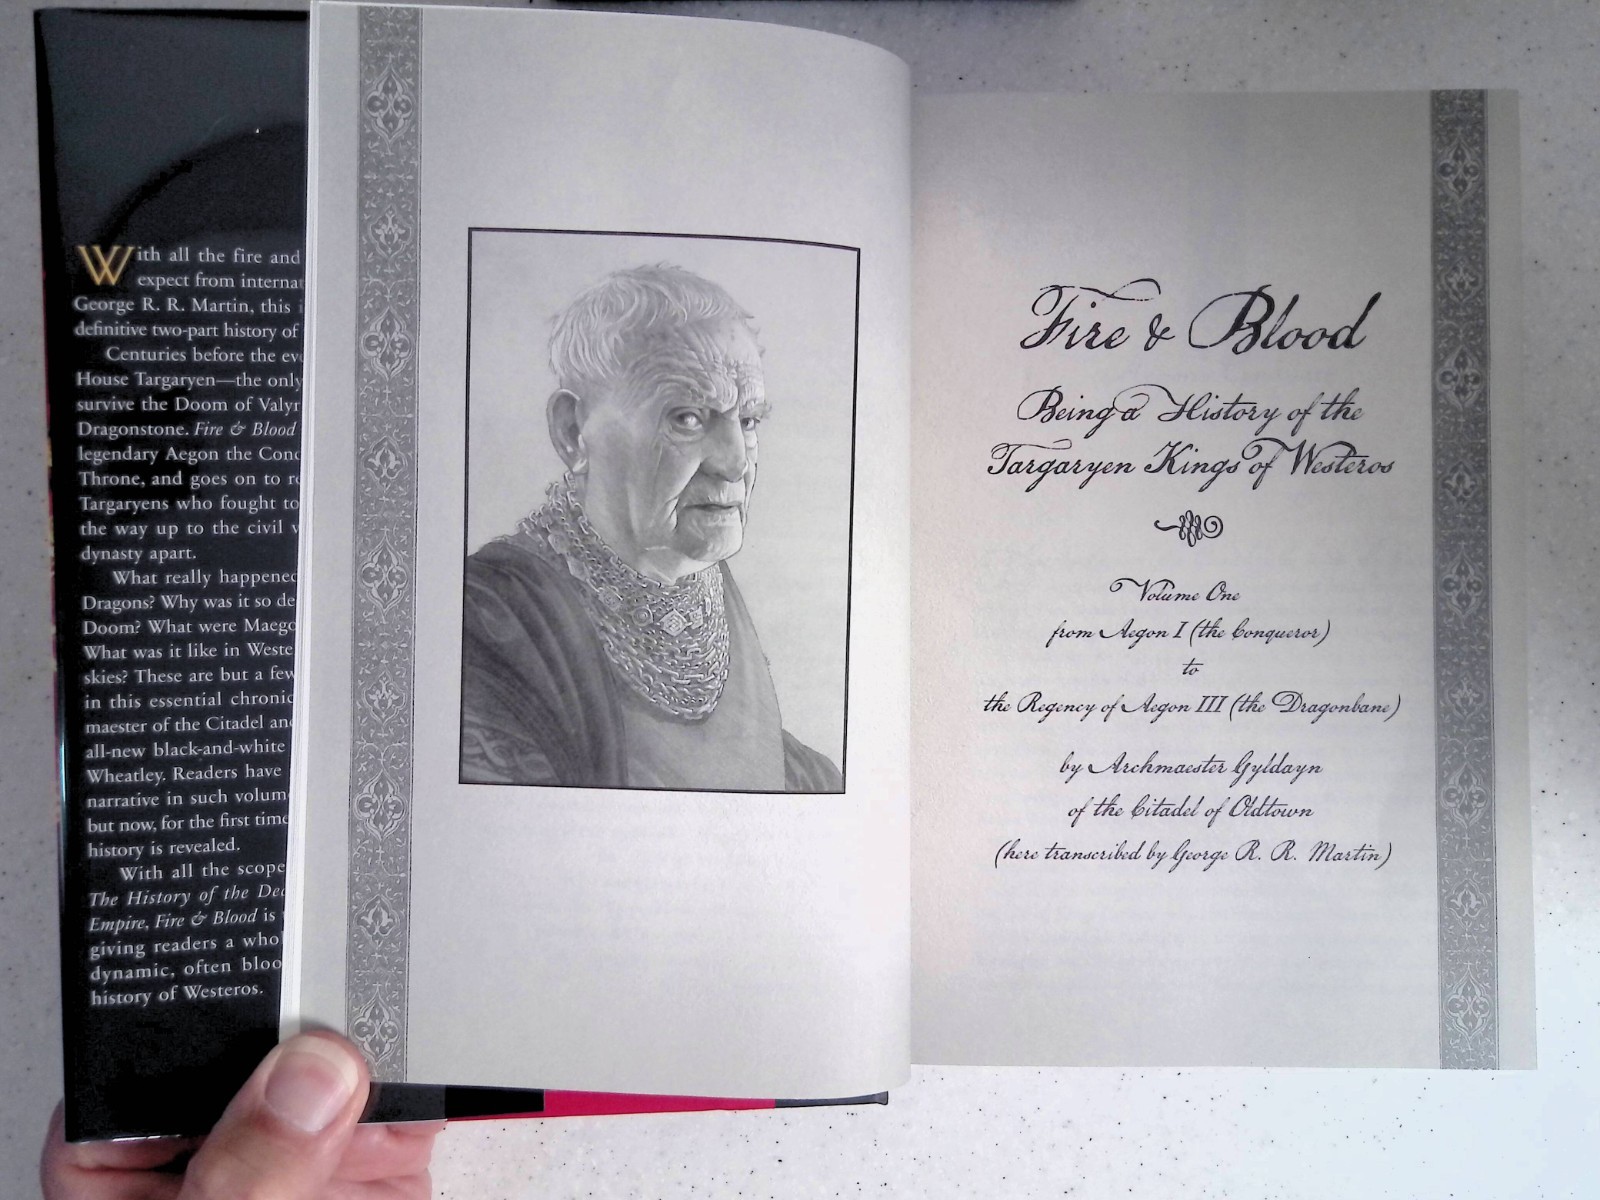 With all the fire and
expect from
George R. R. Martin, this
definitive two-part history of
Centuries before the
House Targaryen—the only
survive the Doom of
Dragonstone. Fire & Blood
legendary Aegon the
Throne, and goes on to
Targaryens who fought to
the way up to the civil
dynasty apart.
What really happened
Dragons? Why was it so
Doom? What were
What was it like in
skies? These are but a few
in this essential
maester of the Citadel
all-new black-and-white
Wheatley. Readers have
narrative in such
but now, for the first time
history is revealed.
With all the scope
The History of the
Empire, Fire & Blood is
giving readers a
dynamic, often
history of Westeros.
Fire & Blood
Being a History of the
Targaryen Kings of Westeros
Volume One
from Aegon I (the Conqueror)
to
the Regency of Aegon III (the Dragonbane)
by Archmaester Gyldayn
of the Citadel of Oldtown
(here transcribed by George R. R. Martin)